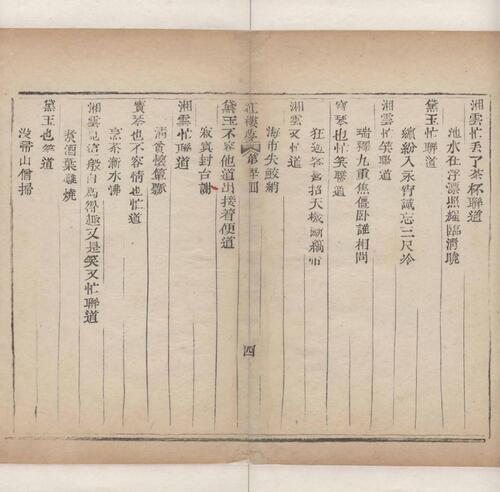 湘雲忙丟了茶杯聯道
池水任浮漂照耀臨清曉
黛玉忙聯道
繽紛入永宵誠忘三尺冷
湘雲忙笑聯道
瑞釋九重焦僵卧誰相問
寶琴也忙笑聯道
狂遊客喜招天機斷縞帶
湘雲又忙道
海市失鮫綃
紅樓夢 第五十回
四
黛玉不容他道出接着便道
寂寞封台榭
湘雲忙聯道
清貧懷簞瓢
寶琴也不容情也忙道
烹茶漸水沸
湘雲見這般自爲得趣又是笑又忙聯道
煮酒葉難燒
黛玉也笑道
沒帚山僧掃